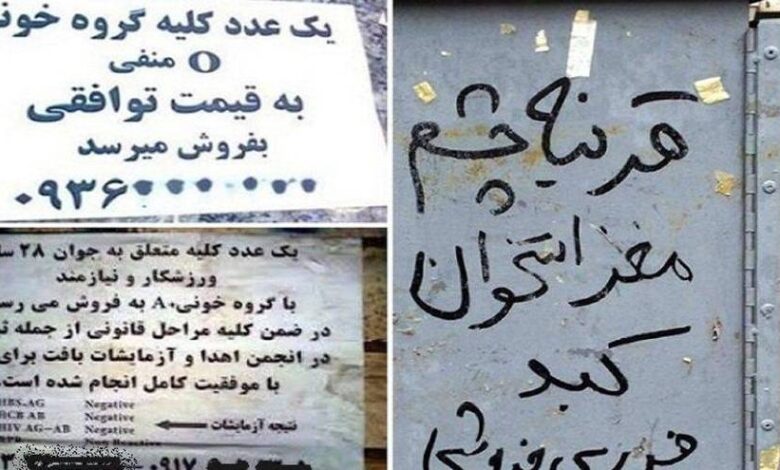 یک عدد کلیه گروه خونی
O منفی
به قیمت توافقی
بفروش میرسد
۰۹۳۶
یک عدد کلیه متعلق به جوان ۲۸
ورزشکار و نیازمند
با گروه خونی A+ به فروش می
در ضمن کلیه مراحل قانونی از جمله
در انجمن اهدا و آزمایشات بافت برای
با موفقیت کامل انجام شده است.
HBS.AG Negative
HCB AB Negative
HIV AG-AB Negative
نتیجه آزمایشات
۰۹۱۷
قرنیه چشم
مغز استخوان
کبد